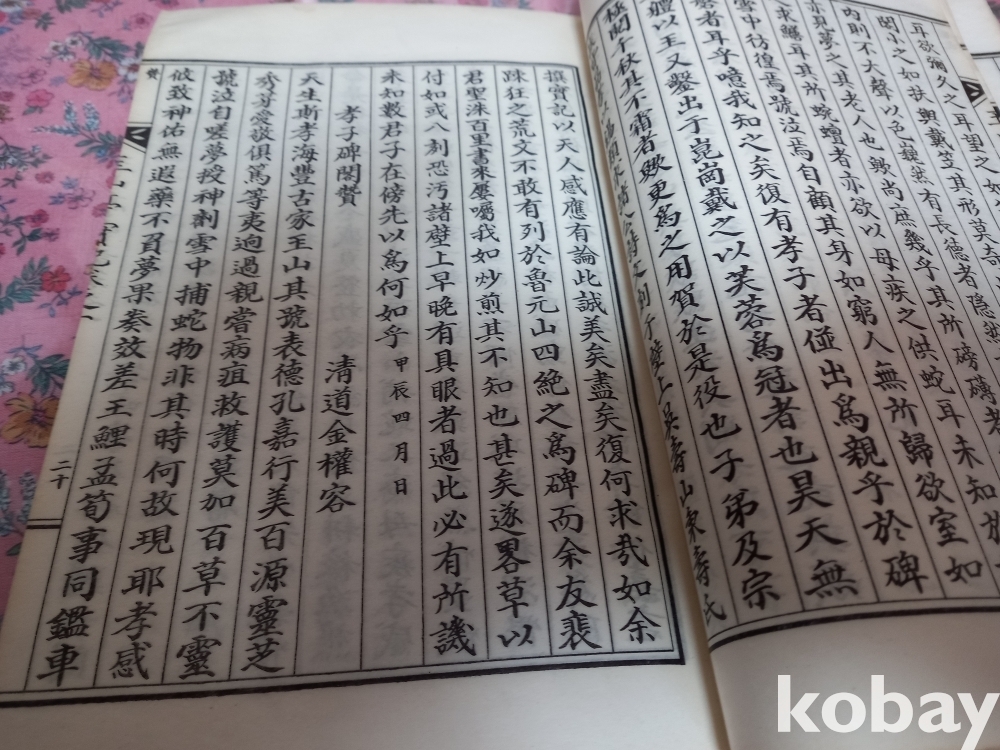 耳欲彌久之耳望之如
閣小之如扶輿戴笠其形莫奇
內則不大聲以色山鬆然有長德者隱然
亦見夢之其老人也歟尚庶幾乎其所磅礴者
求鱷耳其所蛇蟺者亦欲以母疾之供蛇耳未知
雪中彷徨焉號泣焉自顧其身如窮人無所歸欲室如
磨者耳乎噫我知之矣復有孝子者偠出爲親乎於碑
軆以王又鑿出于崑崗戴之以芙蓉爲冠者也昊天無
極閱千秋具不霜者歟更爲之用賀於是役也子弟及宗
撰實記以天人感應有論此誠美矣盡矣復何求哉如余
踈狂之荒文不敢有列於魯元山四絶之爲碑而余友裵
君聖洙百里書來屢囑我如炒煎其不知也甚矣遂畧草以
付如或八刻恐汚諸壁上早晚有具眼者過此必有所譏
未知數君子在傍先以爲何如乎甲辰四月日
清道金權容
孝子碑閣贊
天生斯孝海豐古家王山其號表德孔嘉行美百源靈芝
秀芽愛敬俱篤等夷逈過親嘗病疽救護莫加百草不靈
號泣自嗟夢授神劑雪中捕蛇物非其時何故現耶孝感
攸致神佑無遐藥不負夢果奏效差王鯉孟筍事同鑑車
贊
二十
kobay